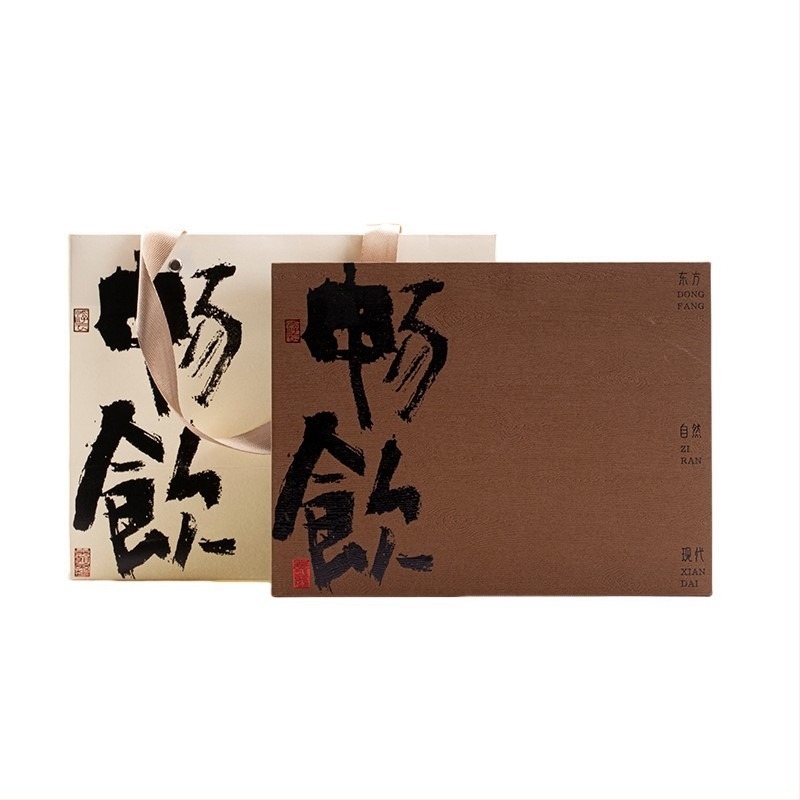 畅
飲
畅
飲
东方
DONG
FANG
自然
ZI
RAN
现代
XIAN
DAI